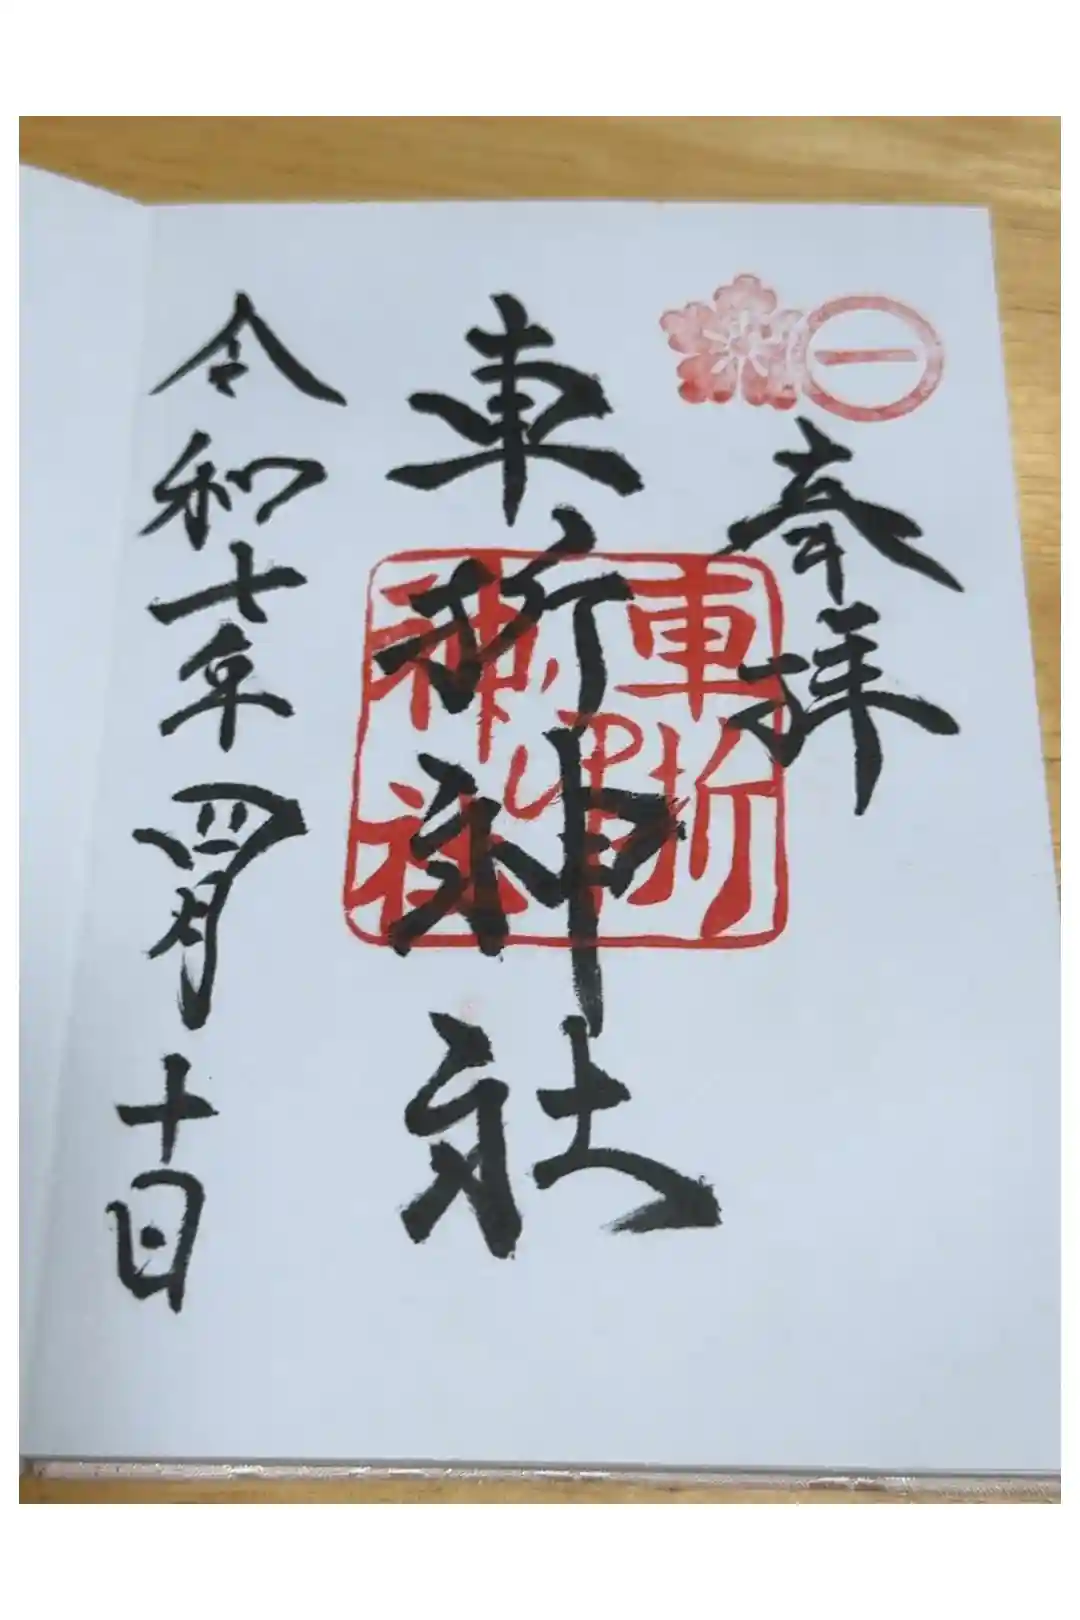 奉拝
車折神社
車折
神社
令和七年四月十日